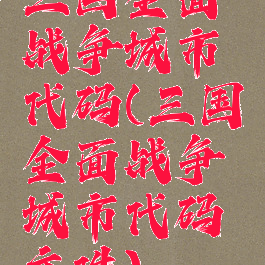 三国全面
战争城市
代码(三国
全面战争
城市代码